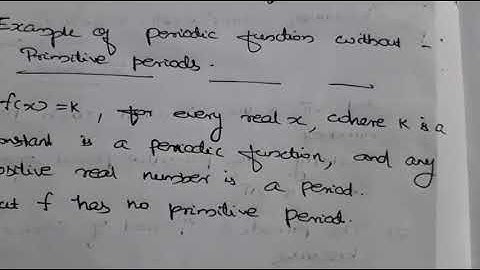 Example of periodic function without -
Primitive periods.
f(x) = K, for every real x, where K is a
onstant is a periodic function, and any
ositive real number is a period.
ut f has no primitive period.